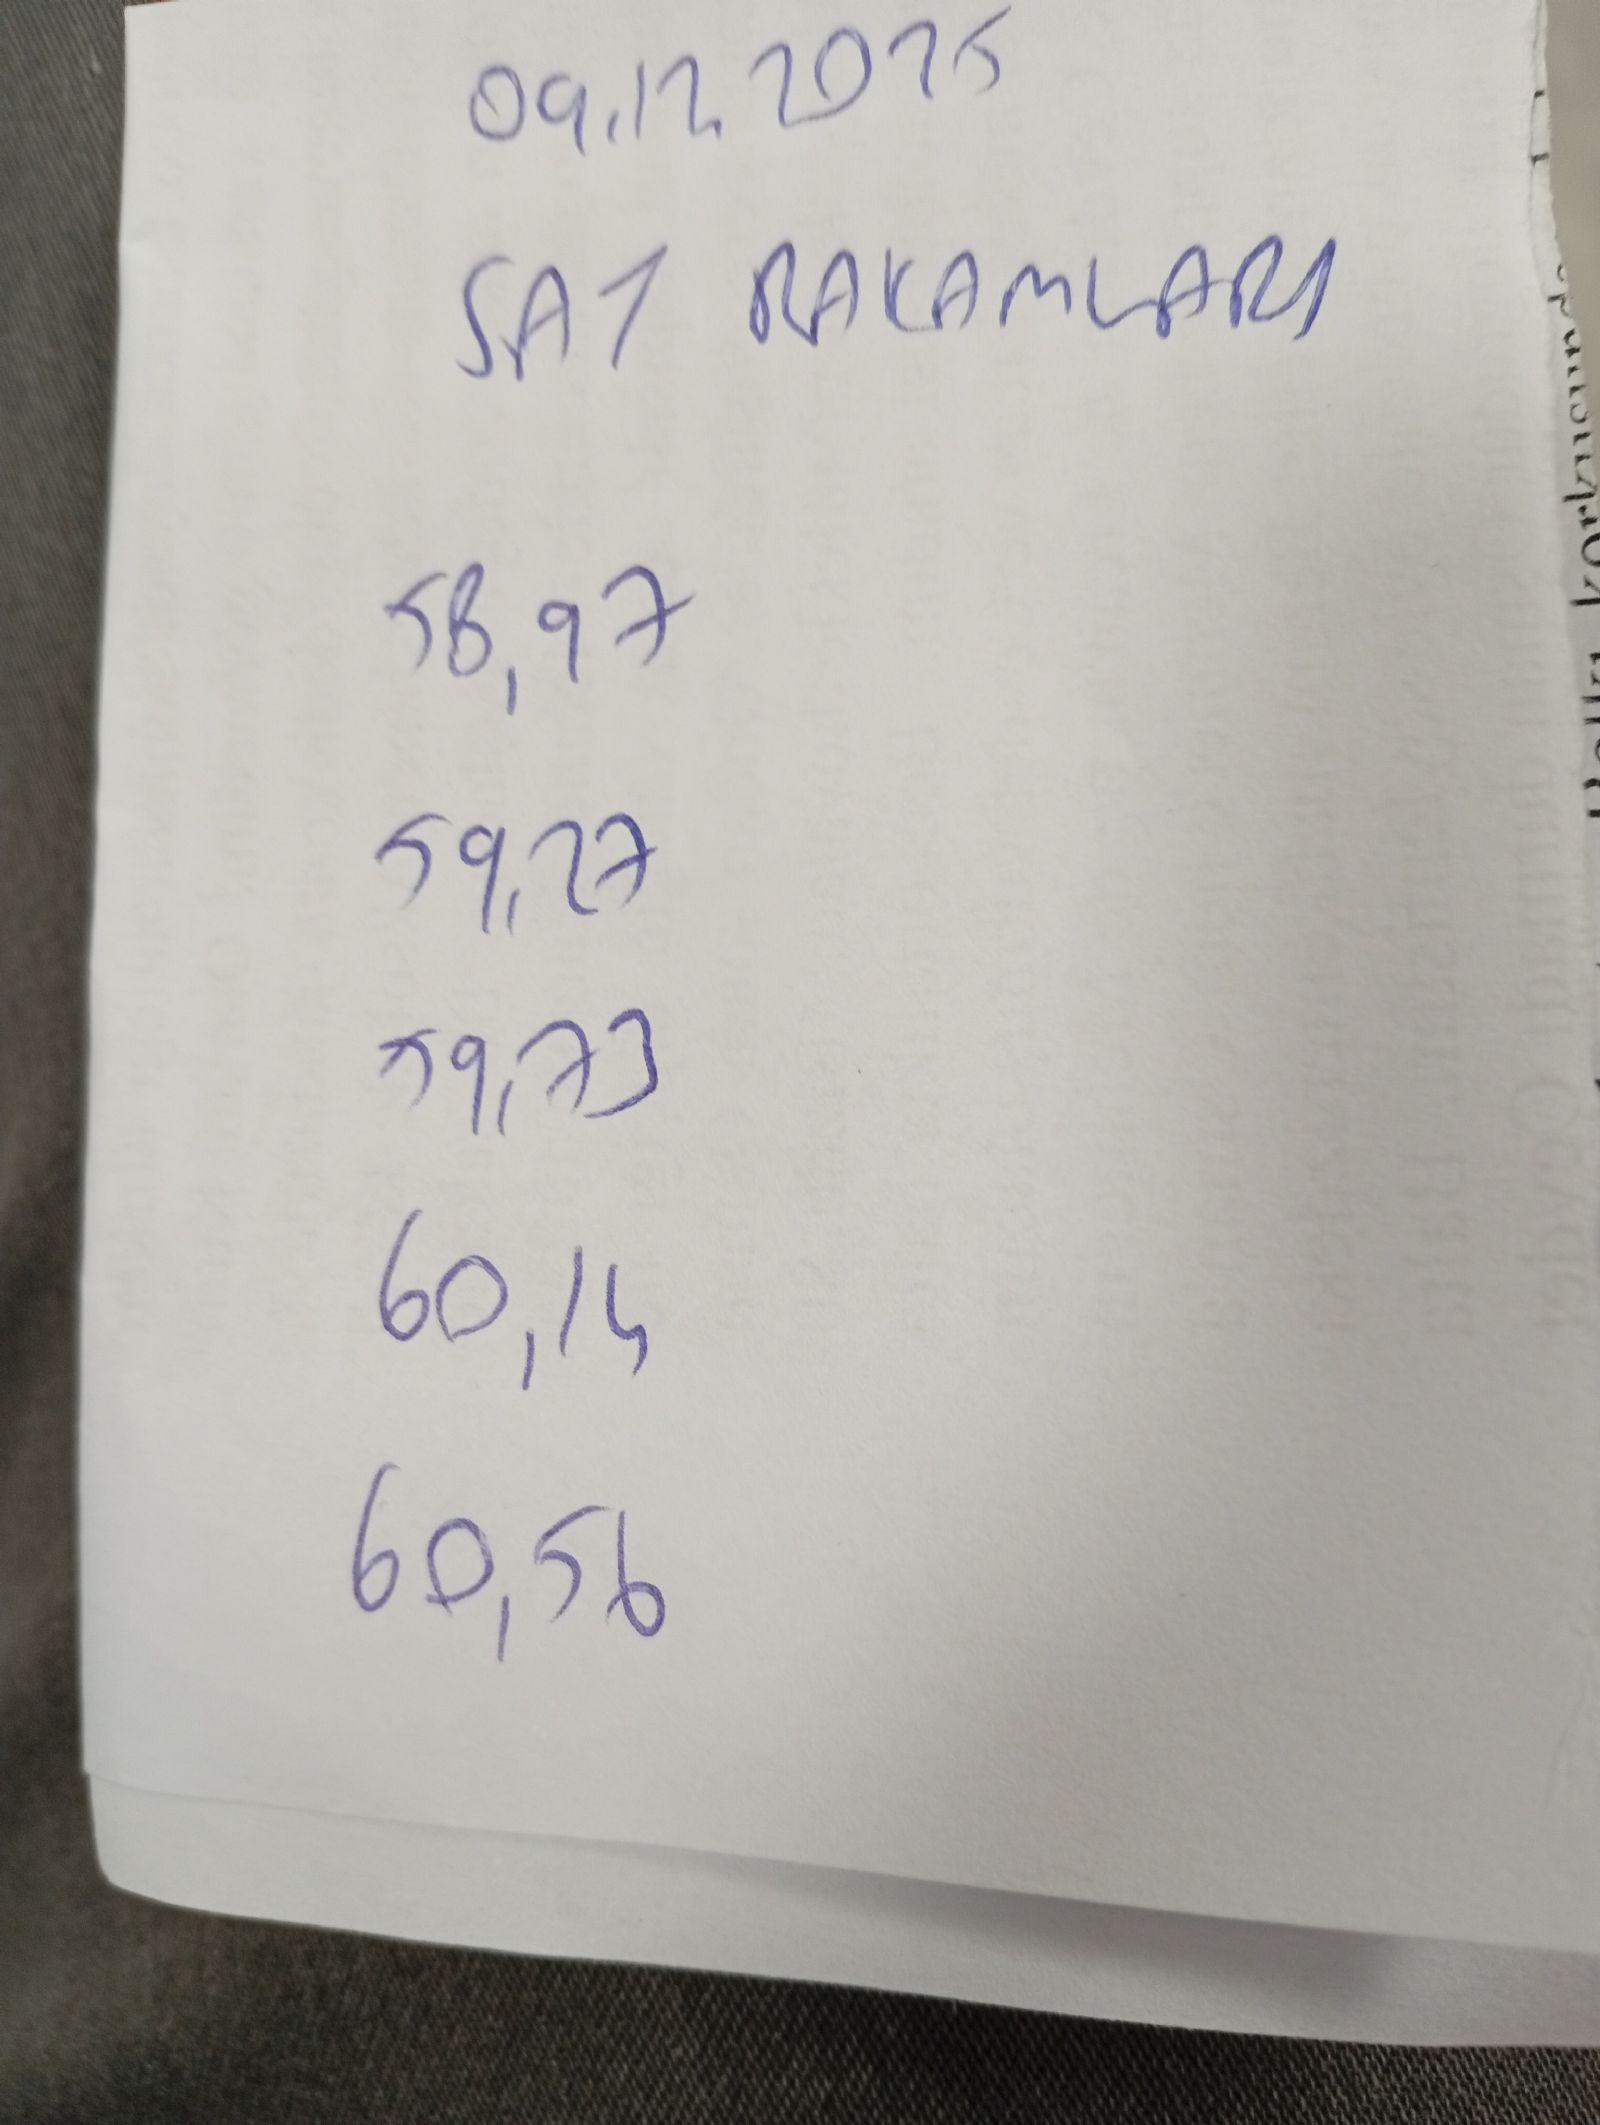 09.12.2025
SAT RAKAMLARI
58,97
59,27
59,73
60,14
60,56